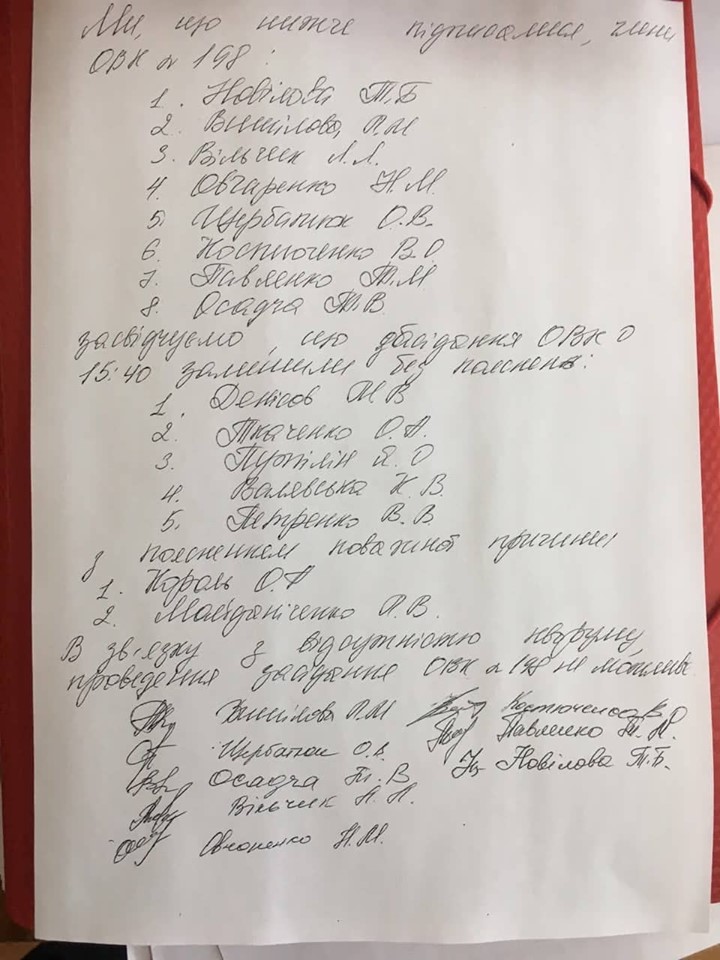 Ми, що нижче підписалися, члени
ОВК № 198 :
1. Новілова Т.Б
2. Винілова, Р.М
3. Вільчик Л.Л.
4. Овчаренко Н.М.
5. Щербатюк О.В.
6 Костюченко В.О
7. Павленко Т.М
8. Осадча Т.В.
засвідчуємо, що засідання ОВК о
15:40 залишили без пояснень:
1. Денісов М В
2. Ткаченко О.А.
3. Пужілін Я.О
4. Валявська К.В.
5. Петренко В.В.
з поясненням поважної причини
1. Король О.А
2. Майданіченко Р.В.
В зв'язку з відсутністю кворуму,
проведення засідання ОВК № 198 не можливе
Р.М Костюченко В О
Щербатюк О.В. Павленко Т.М.
Осадча Т.В Новілова Т.Б.
Вільчик
Н.М.